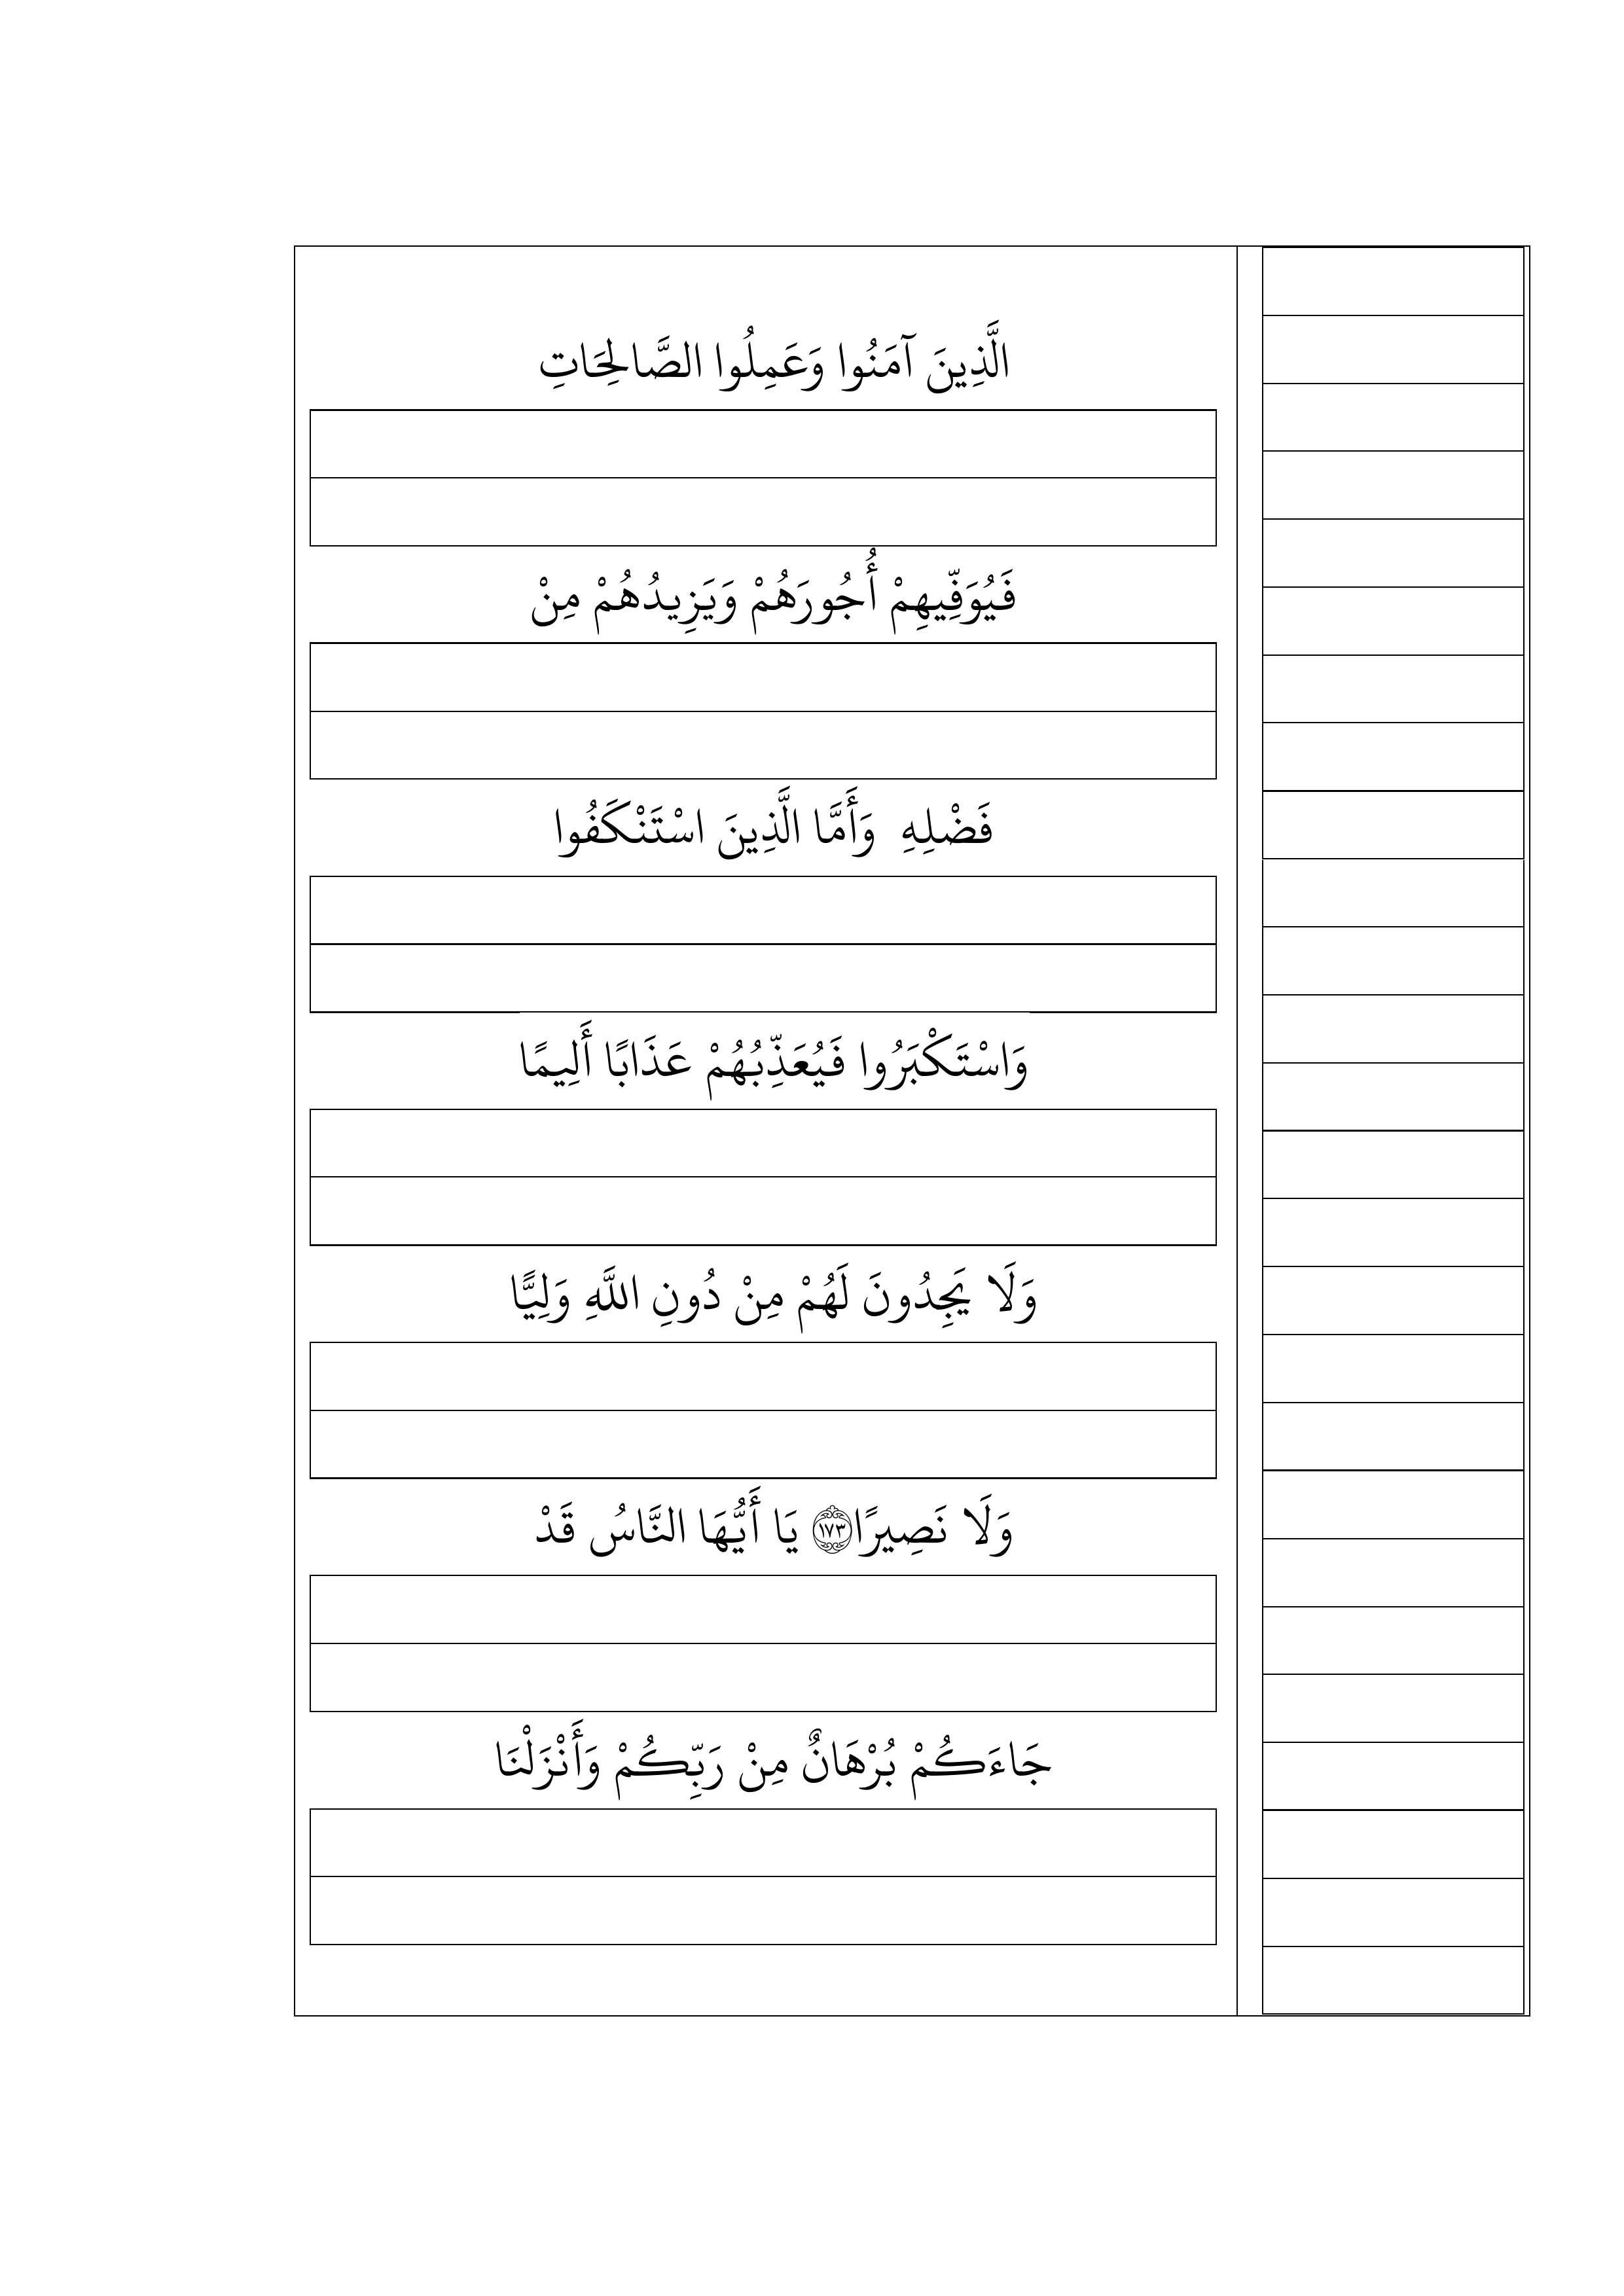 الَّذِينَ آمَنُوا وَعَمِلُوا الصَّالِحَاتِ
فَيُوَفِّيهِمْ أُجُورَهُمْ وَيَزِيدُهُمْ مِنْ
فَضْلِهِ وَأَمَّا الَّذِينَ اسْتَنْكَفُوا
وَاسْتَكْبَرُوا فَيُعَذِّبُهُمْ عَذَابًا أَلِيمًا
وَلَا يَجِدُونَ لَهُمْ مِنْ دُونِ اللَّهِ وَلِيًّا
وَلَا نَصِيرًا ۝١٧٣ يَا أَيُّهَا النَّاسُ قَدْ
جَاءَكُمْ بُرْهَانٌ مِنْ رَبِّكُمْ وَأَنْزَلْنَا